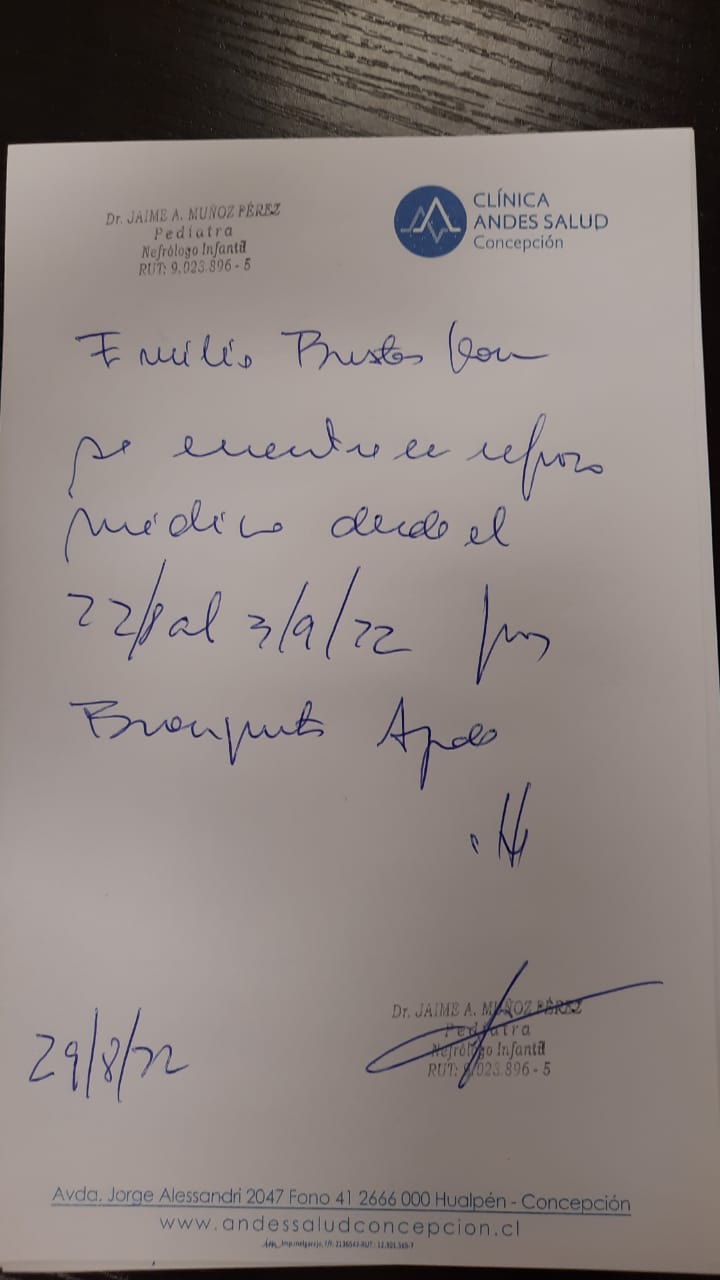 Dr. JAIME A. MUÑOZ PÉREZ
Pediatra
Nefrólogo Infantil
RUT: 9.023.896 - 5
CLÍNICA
ANDES SALUD
Concepción
Emilio Bustos
se encuentra en reposo
médico desde el
22/8 al 3/9/22 por
Bronquitis Aguda
29/8/22
Dr. JAIME A. MUÑOZ PÉREZ
Pediatra
Nefrólogo Infantil
RUT: 9.023.896 - 5
Avda. Jorge Alessandri 2047 Fono 41 2666 000 Hualpén - Concepción
www.andessaludconcepcion.cl